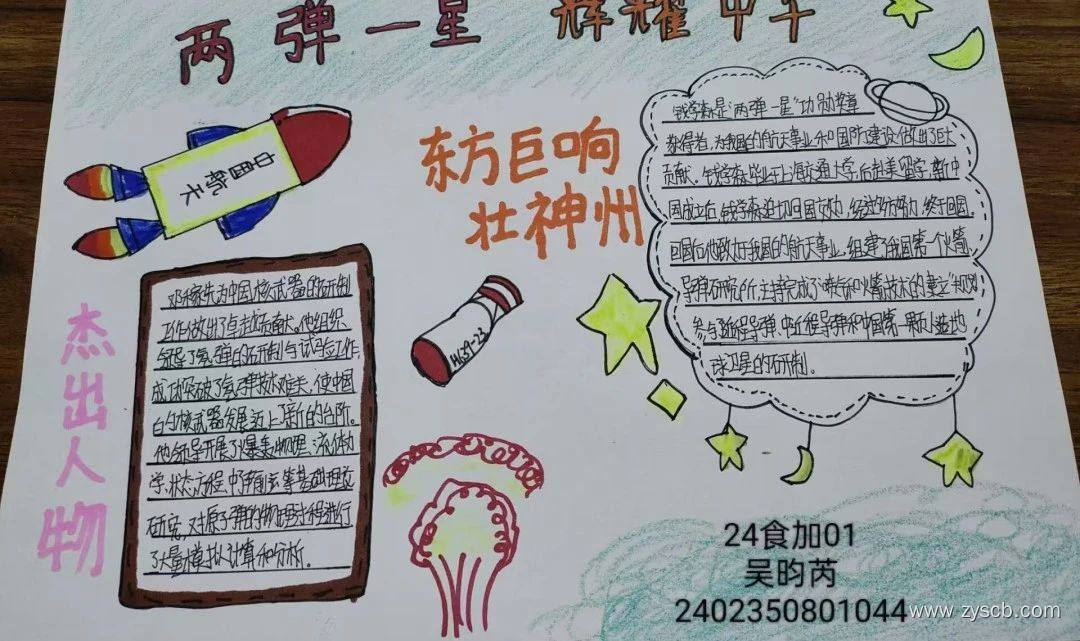 两弹一星 辉耀中华
中国航天
东方巨响
壮神州
钱学森是“两弹一星”功勋奖章
获得者,为我国的航天事业和国防建设做出了巨大
贡献。钱学森毕业于上海交通大学,后赴美留学,新中
国成立后,钱学森迫切回国效力,经过努力,终于回国。
回国后他致力于我国的航天事业,组建了我国第一个火箭、
导弹研究所,主持完成了“喷气和火箭技术的建立”规划
参与了近程导弹、中近程导弹和中国第一颗人造地
球卫星的研制。
杰出人物
邓稼先为中国核武器的研制
工作做出了卓越贡献。他组织
领导了氢弹的研制与试验工作,
成功突破了氢弹技术难关,使中国
的核武器发展迈上了新的台阶。
他领导开展了爆轰物理、流体力
学、状态方程、中子输运等基础理论
研究,对原子弹的物理过程进行
了大量模拟计算和分析。
24食加01
吴昀芮
2402350801044
www.zyscb.com